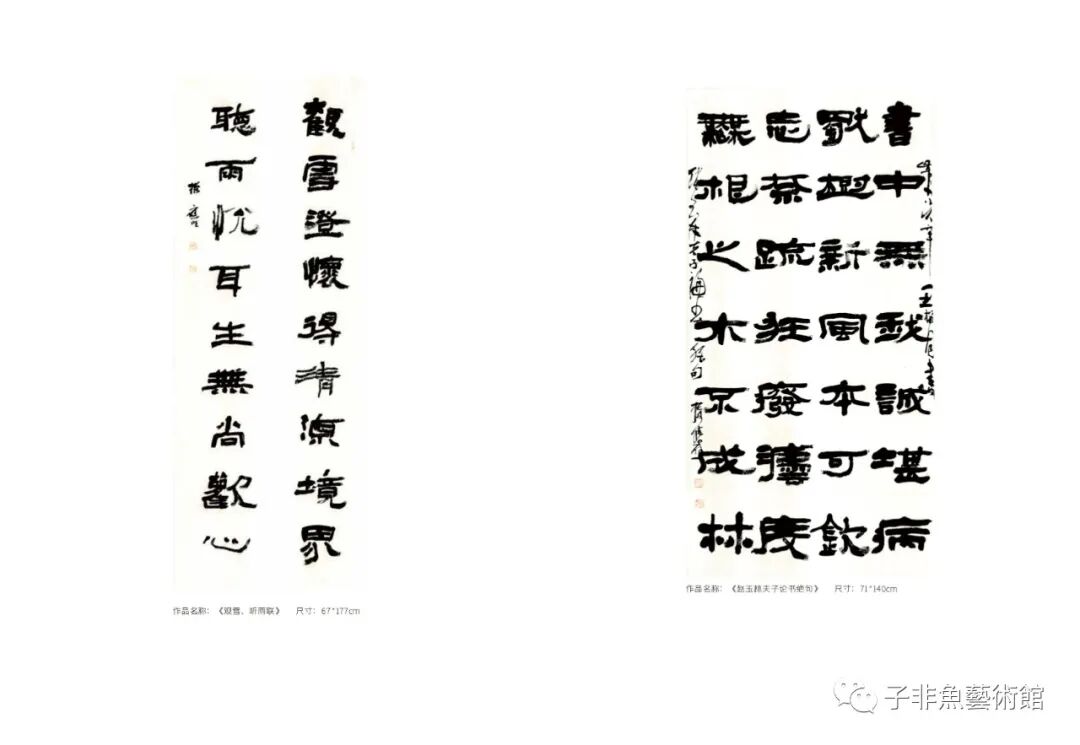 觀雪澄懷得清涼境界
聽雨悅耳生無尚歡心
作品名称：《观雪、听雨联》 尺寸：67*177cm
書中無我誠堪病
新風本可欽
疏狂廢度
無根之木不成林
作品名称：《赵玉林夫子论书绝句》 尺寸：71*140cm
子非魚藝術館